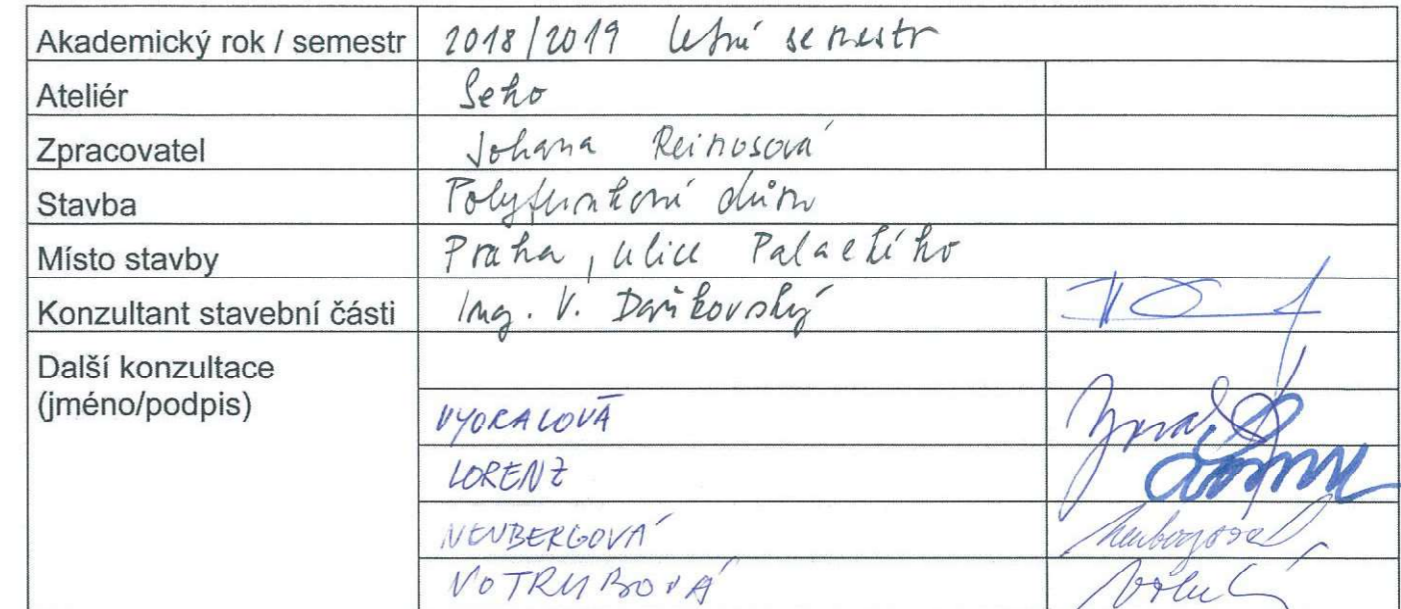 Akademický rok / semestr 2018/2019 letní semestr
Ateliér Seho
Zpracovatel Johana Reinusová
Stavba Polyfunkční dům
Místo stavby Praha, ulice Palackého
Konzultant stavební části Ing. V. Daňkovský
Další konzultace
(jméno/podpis)
VYORALOVÁ
LORENZ
NEUBERGOVÁ Neubergová
VOTRUBOVÁ